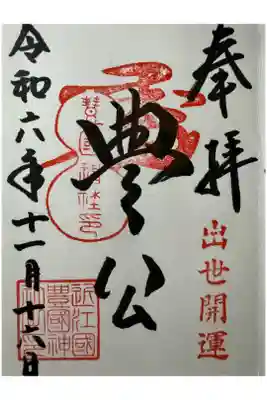 奉拝
出世開運
豊公
豊國神社印
近江國
豊國神
社之印
令和六年十一月十六日